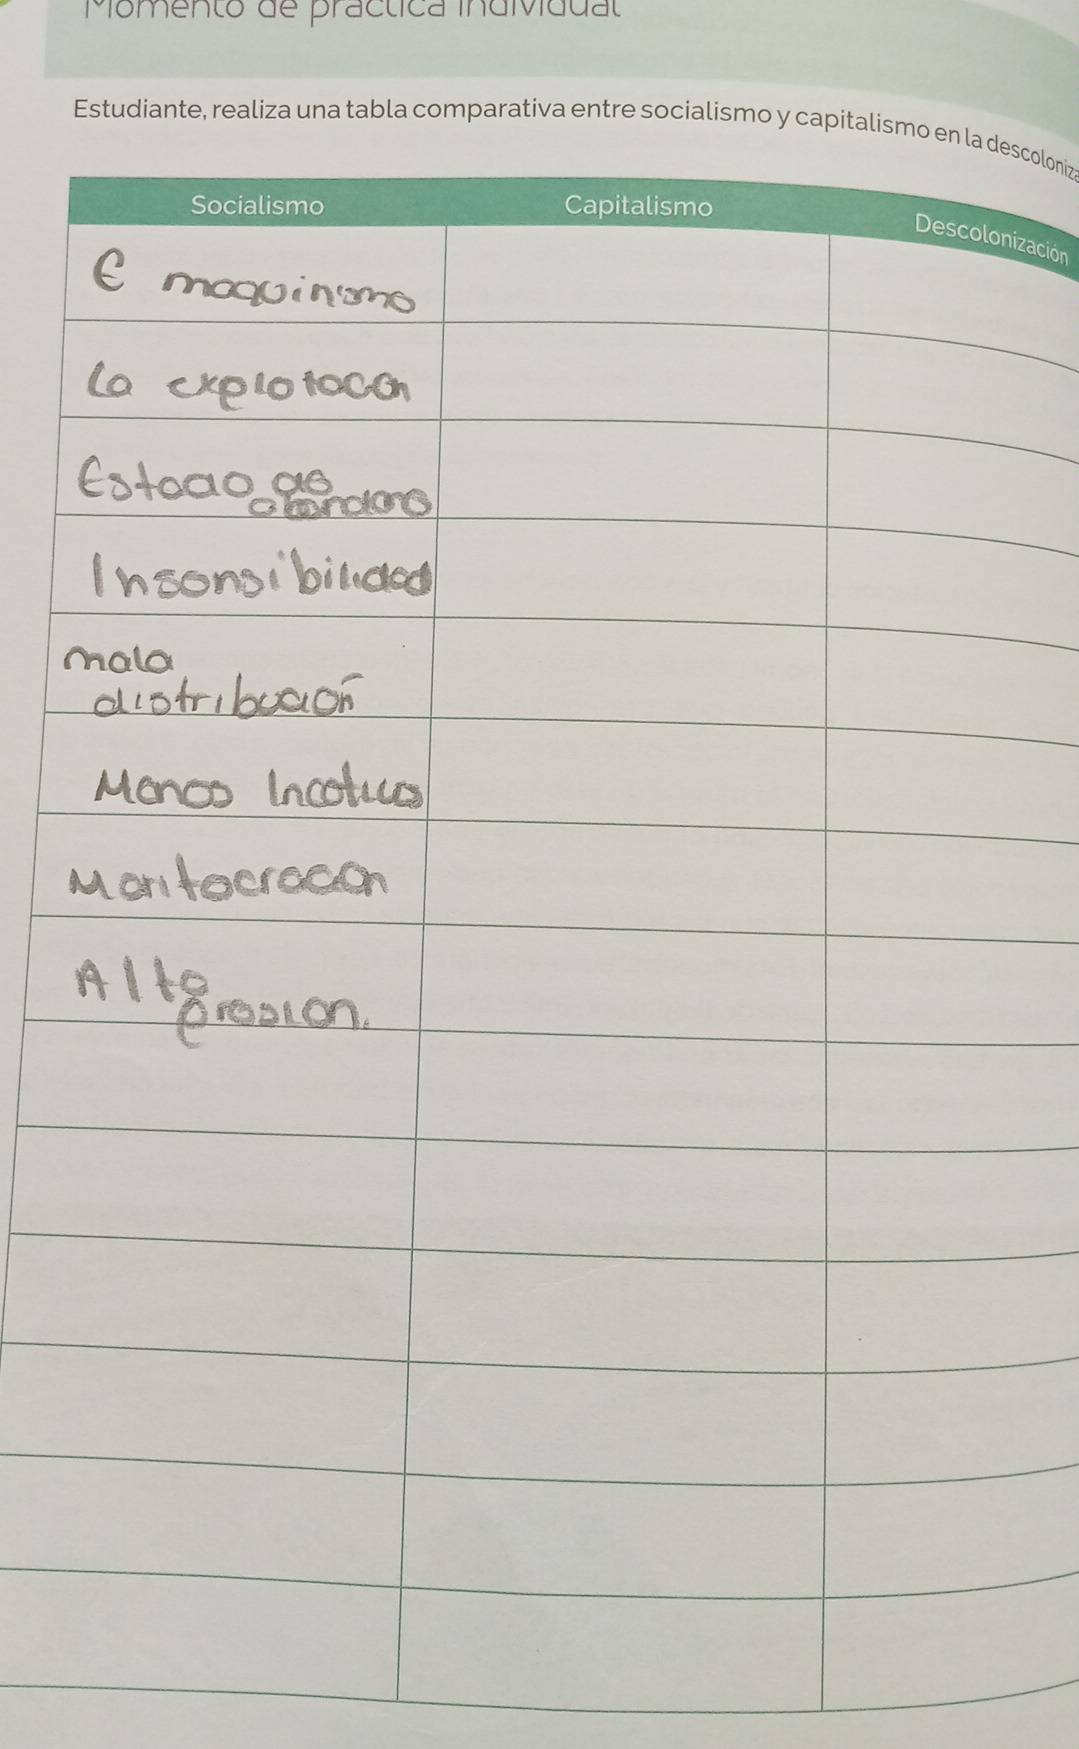 Momento de práctica individual
Estudiante, realiza una tabla comparativa entre socialismo y capitalismo en la descoloniza
Socialismo
Capitalismo
Descolonización
E maquinismo
La explotacon
Estado de
abandono
Insensibilidad
mala
distribucion
Menos Incotivos
Meritocracion
Alta
presion.